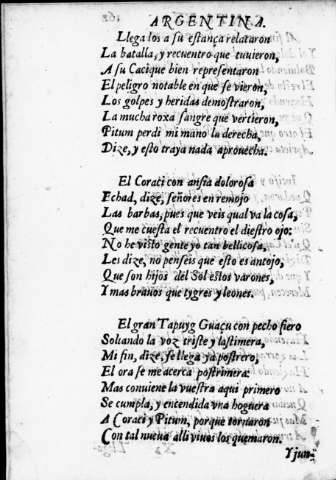 ARGENTINA.
Llega los a su estança relataron
La batalla, y recuentro que tuuieron,
A su Cacique bien representaron
El peligro notable en que se vieron,
Los golpes y heridas demostraron,
La mucha roxa sangre que vertieron,
Pitum perdi mi mano la derecha,
Dize, y esto traya nada aprouecha.
El Coraci con ansia dolorosa
Echad, dize, señores en remojo
Las barbas, pues que veis qual va la cosa,
Que me cuesta el recuentro el diestro ojo:
No he visto gente yo tan bellicosa,
Les dize, no penseis que esto es antojo,
Que son hijos del Sol estos varones,
Y mas brauos que tygres y leones.
El gran Tapuyg Guaçu con pecho fiero
Soltando la voz triste y lastimera,
Mi fin, dize, se llega ya postrero,
El ora se me acerca postrimera:
Mas conuiene la vuestra aqui primero
Se cumpla, y entendida vna hoguera
A Coraci y Pitum, porque tornaron
Con tal nueua alli viuos los quemaron.
Y jun-